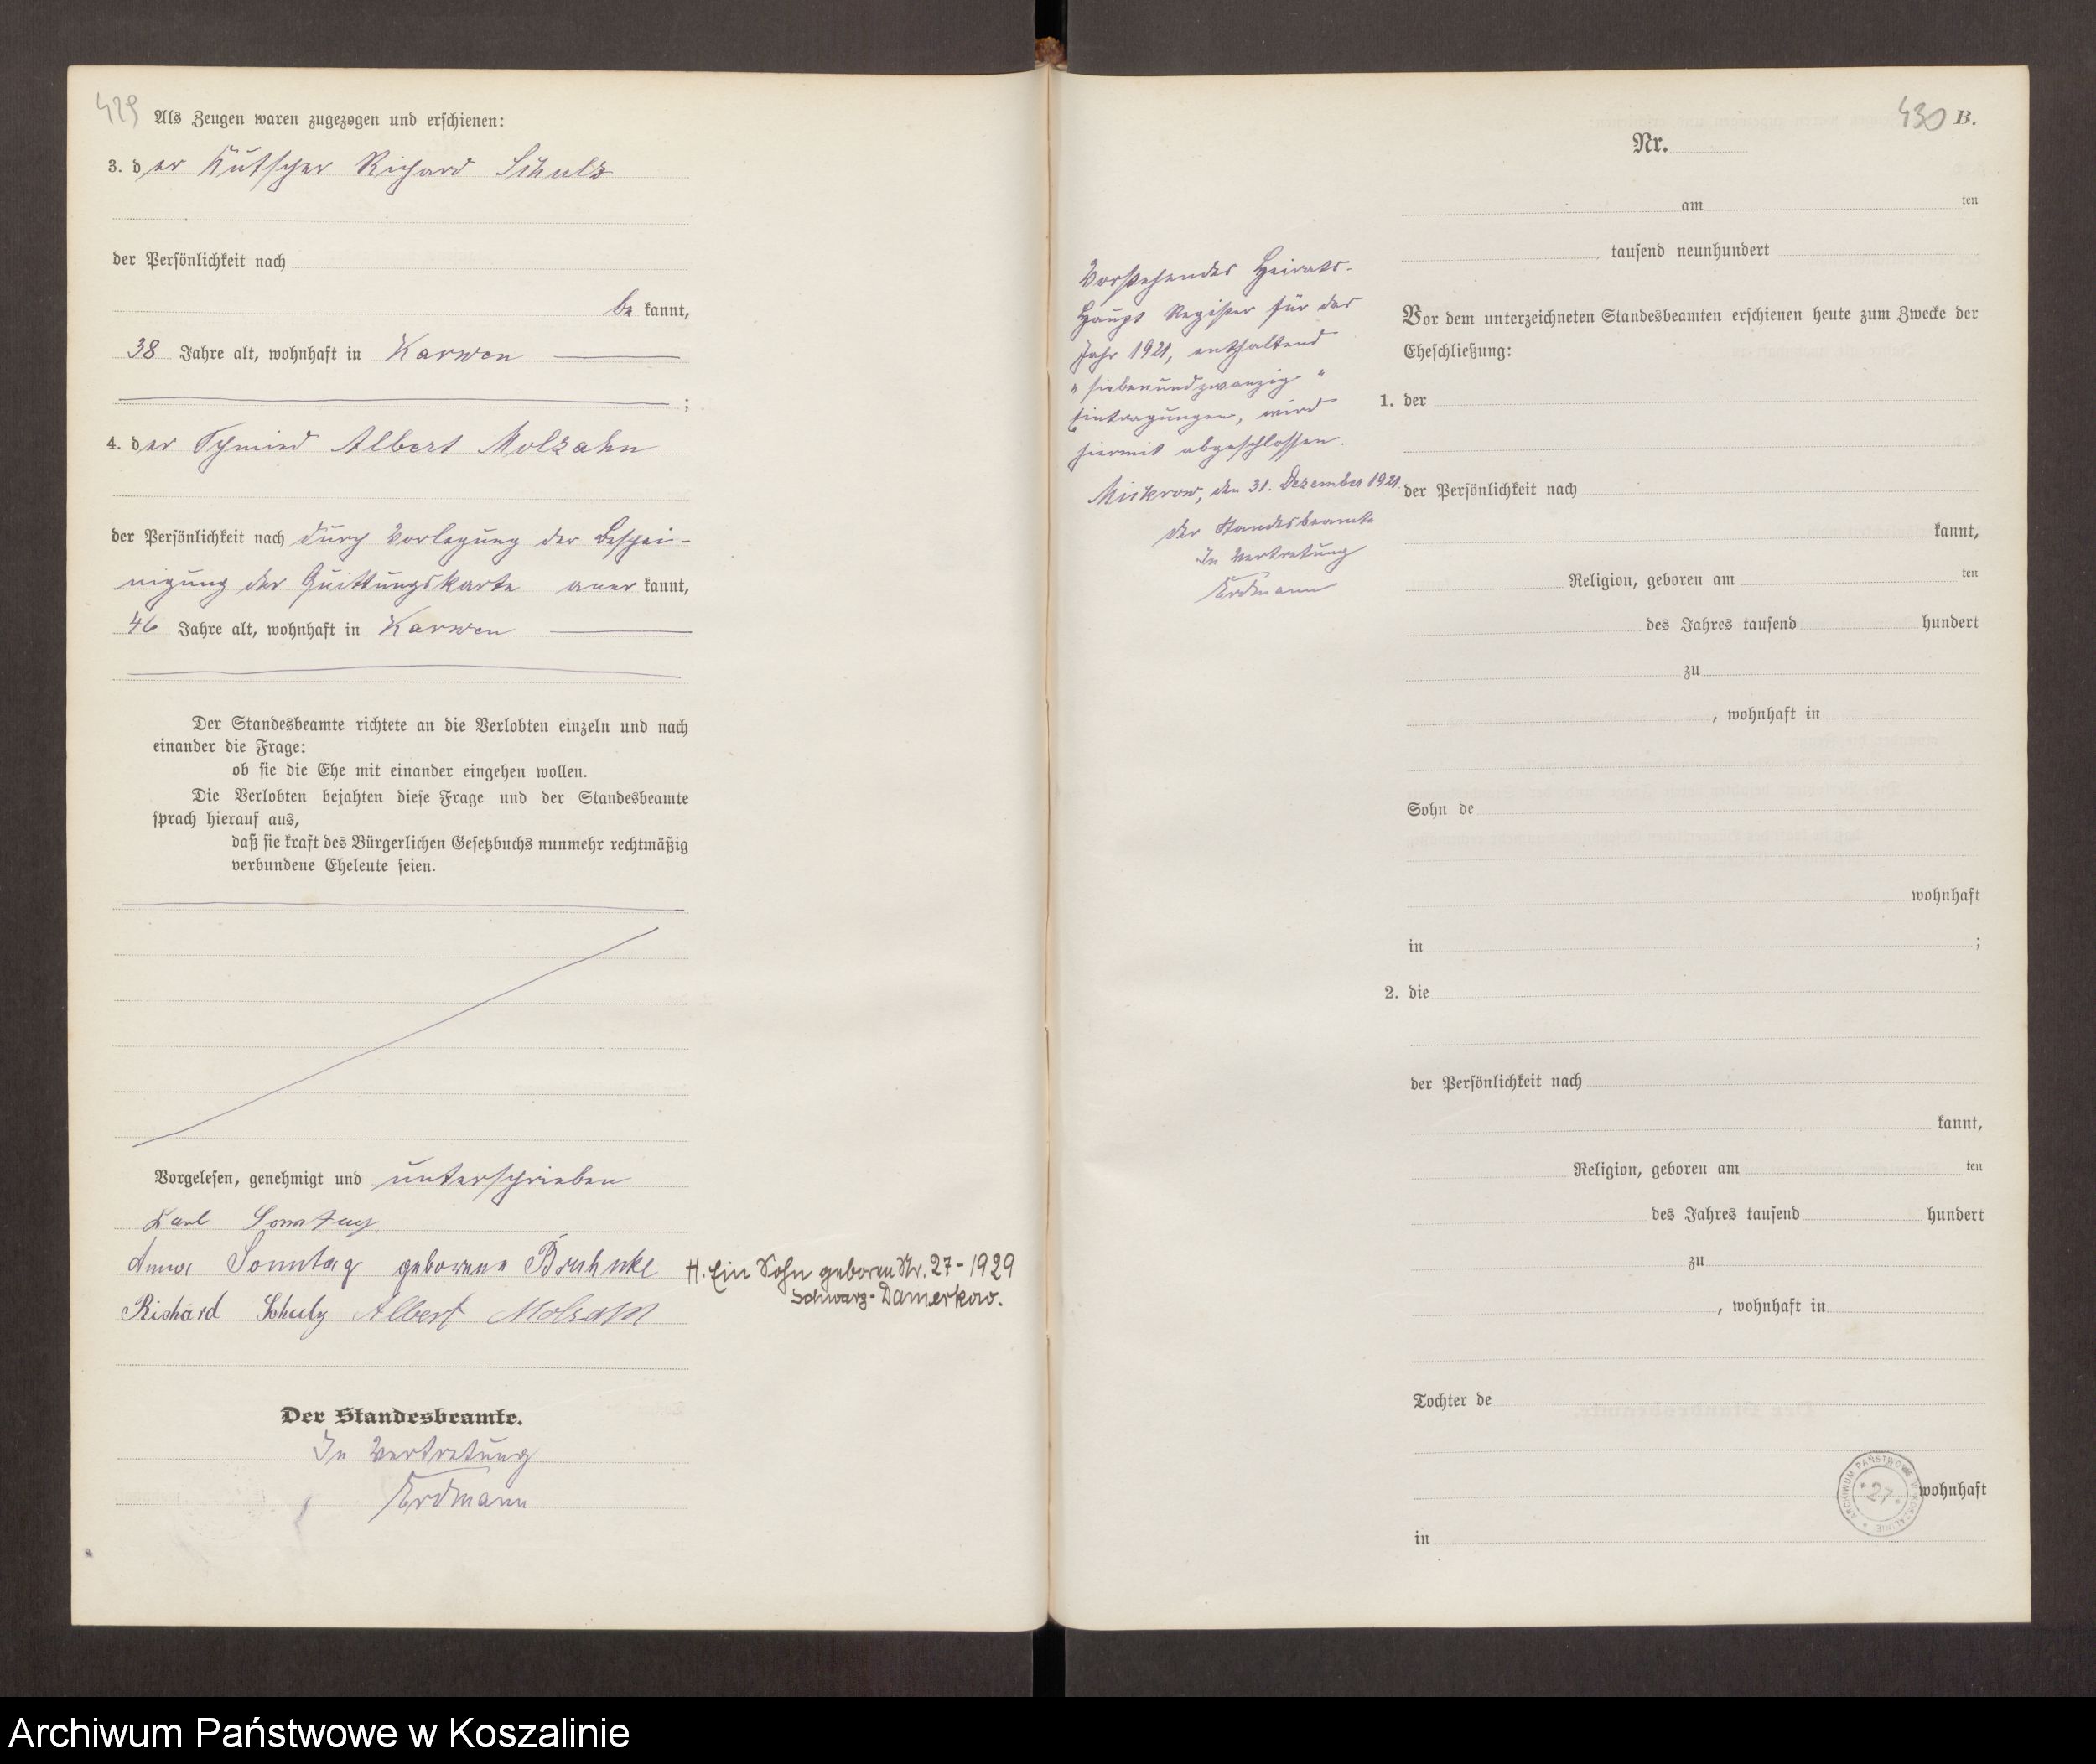 429
Als Zeugen waren zugezogen und erschienen:
3. der Kutscher Richard Schulz
der Persönlichkeit nach
be kannt,
38 Jahre alt, wohnhaft in Karwen
;
4. der Schmied Albert Molzahn
der Persönlichkeit nach durch Vorlegung der Beschei-
nigung der Quittungskarte aner kannt,
46 Jahre alt, wohnhaft in Karwen
Der Standesbeamte richtete an die Verlobten einzeln und nach
einander die Frage:
ob sie die Ehe mit einander eingehen wollen.
Die Verlobten bejahten diese Frage und der Standesbeamte
sprach hierauf aus,
daß sie kraft des Bürgerlichen Gesetzbuchs nunmehr rechtmäßig
verbundene Eheleute seien.
Vorgelesen, genehmigt und unterschrieben
Karl Sonntag
Anna Sonntag geborene Bruhnke
Richard Schulz Albert Molzahn
H. Ein Sohn geboren Nr. 27-1929
Schwarz-Damerkow.
Der Standesbeamte.
In Vertretung
Erdmann
430 B.
Nr.
am ten
tausend neunhundert
Vorstehendes Heirats-
Haupt Register für das
Jahr 1921, enthaltend
"siebenundzwanzig"
Eintragungen, wird
hiermit abgeschlossen.
Mickrow, den 31. Dezember 1921.
Der Standesbeamte
In Vertretung
Erdmann
Vor dem unterzeichneten Standesbeamten erschienen heute zum Zwecke der
Eheschließung:
1. der
der Persönlichkeit nach
kannt,
Religion, geboren am ten
des Jahres tausend hundert
zu
, wohnhaft in
Sohn de
wohnhaft
in ;
2. die
der Persönlichkeit nach
kannt,
Religion, geboren am ten
des Jahres tausend hundert
zu
, wohnhaft in
Tochter de
wohnhaft
in
ARCHIWUM PAŃSTWOWE W KOSZALINIE
* 27 *
Archiwum Państwowe w Koszalinie